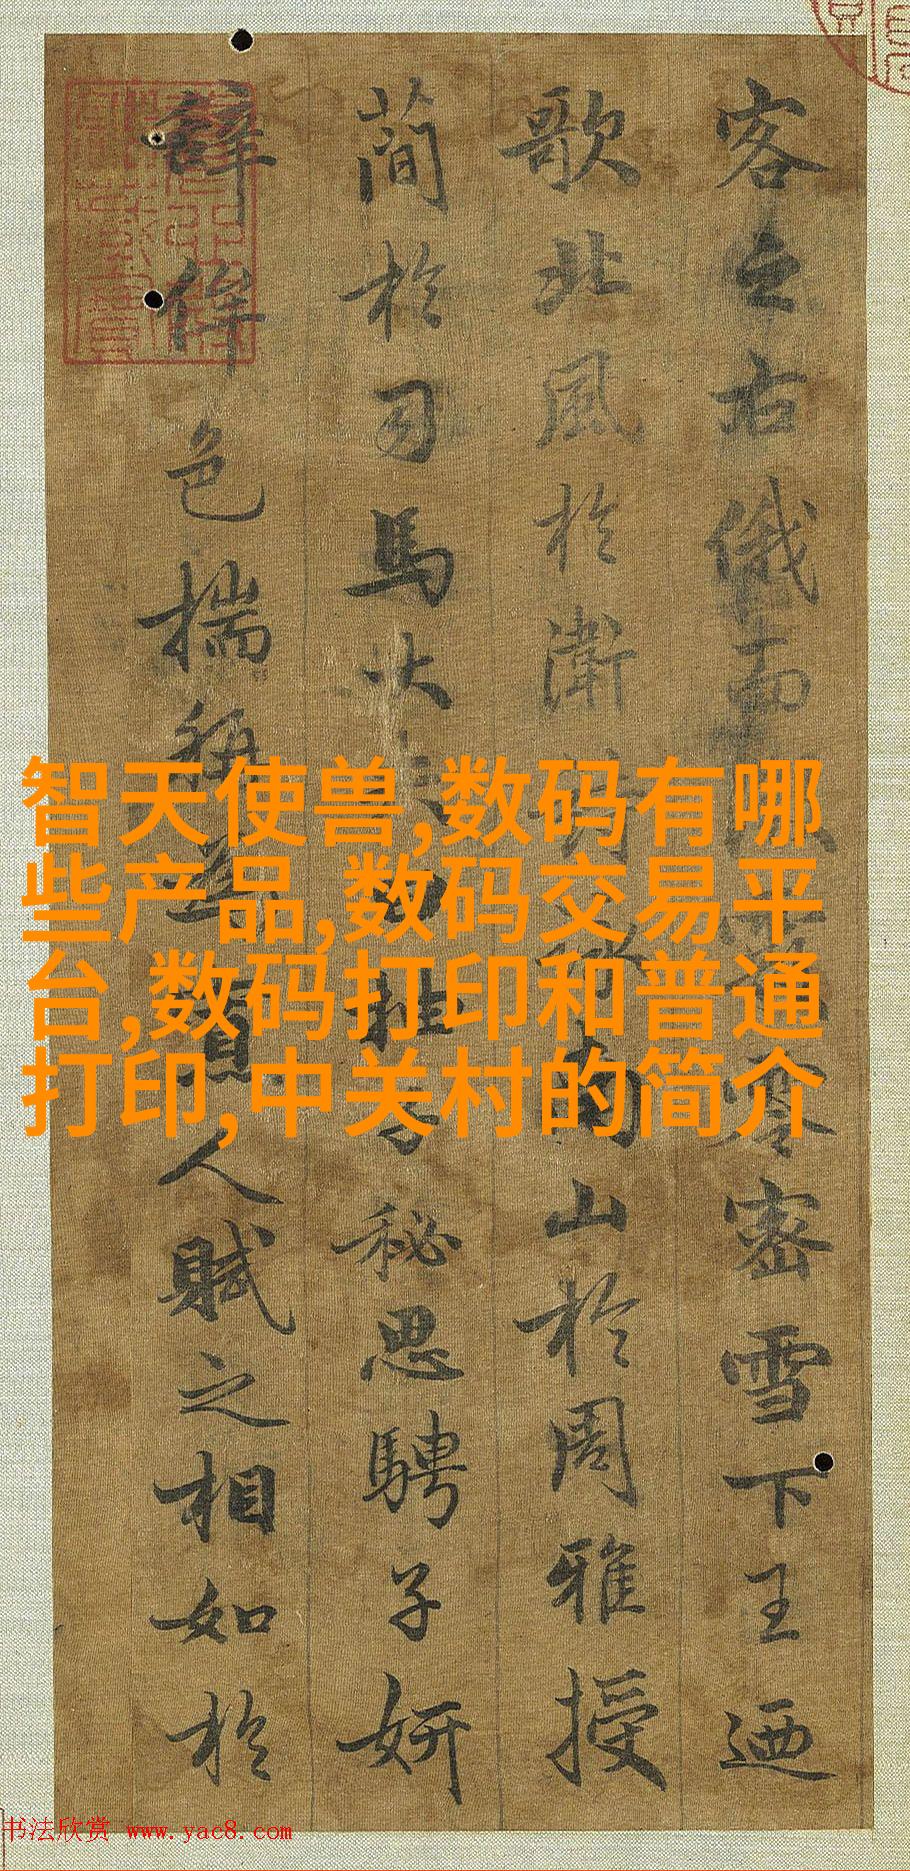 客之右俄而零密雪下王迺
歌北風於衛南山於周雅授
簡於司馬大秘思騁子妍
辭侔色揣稱人賦之相如於
智天使兽,数码有哪
些产品,数码交易平
台,数码打印和普通
打印,中关村的简介
书法欣赏 www.yac8.com